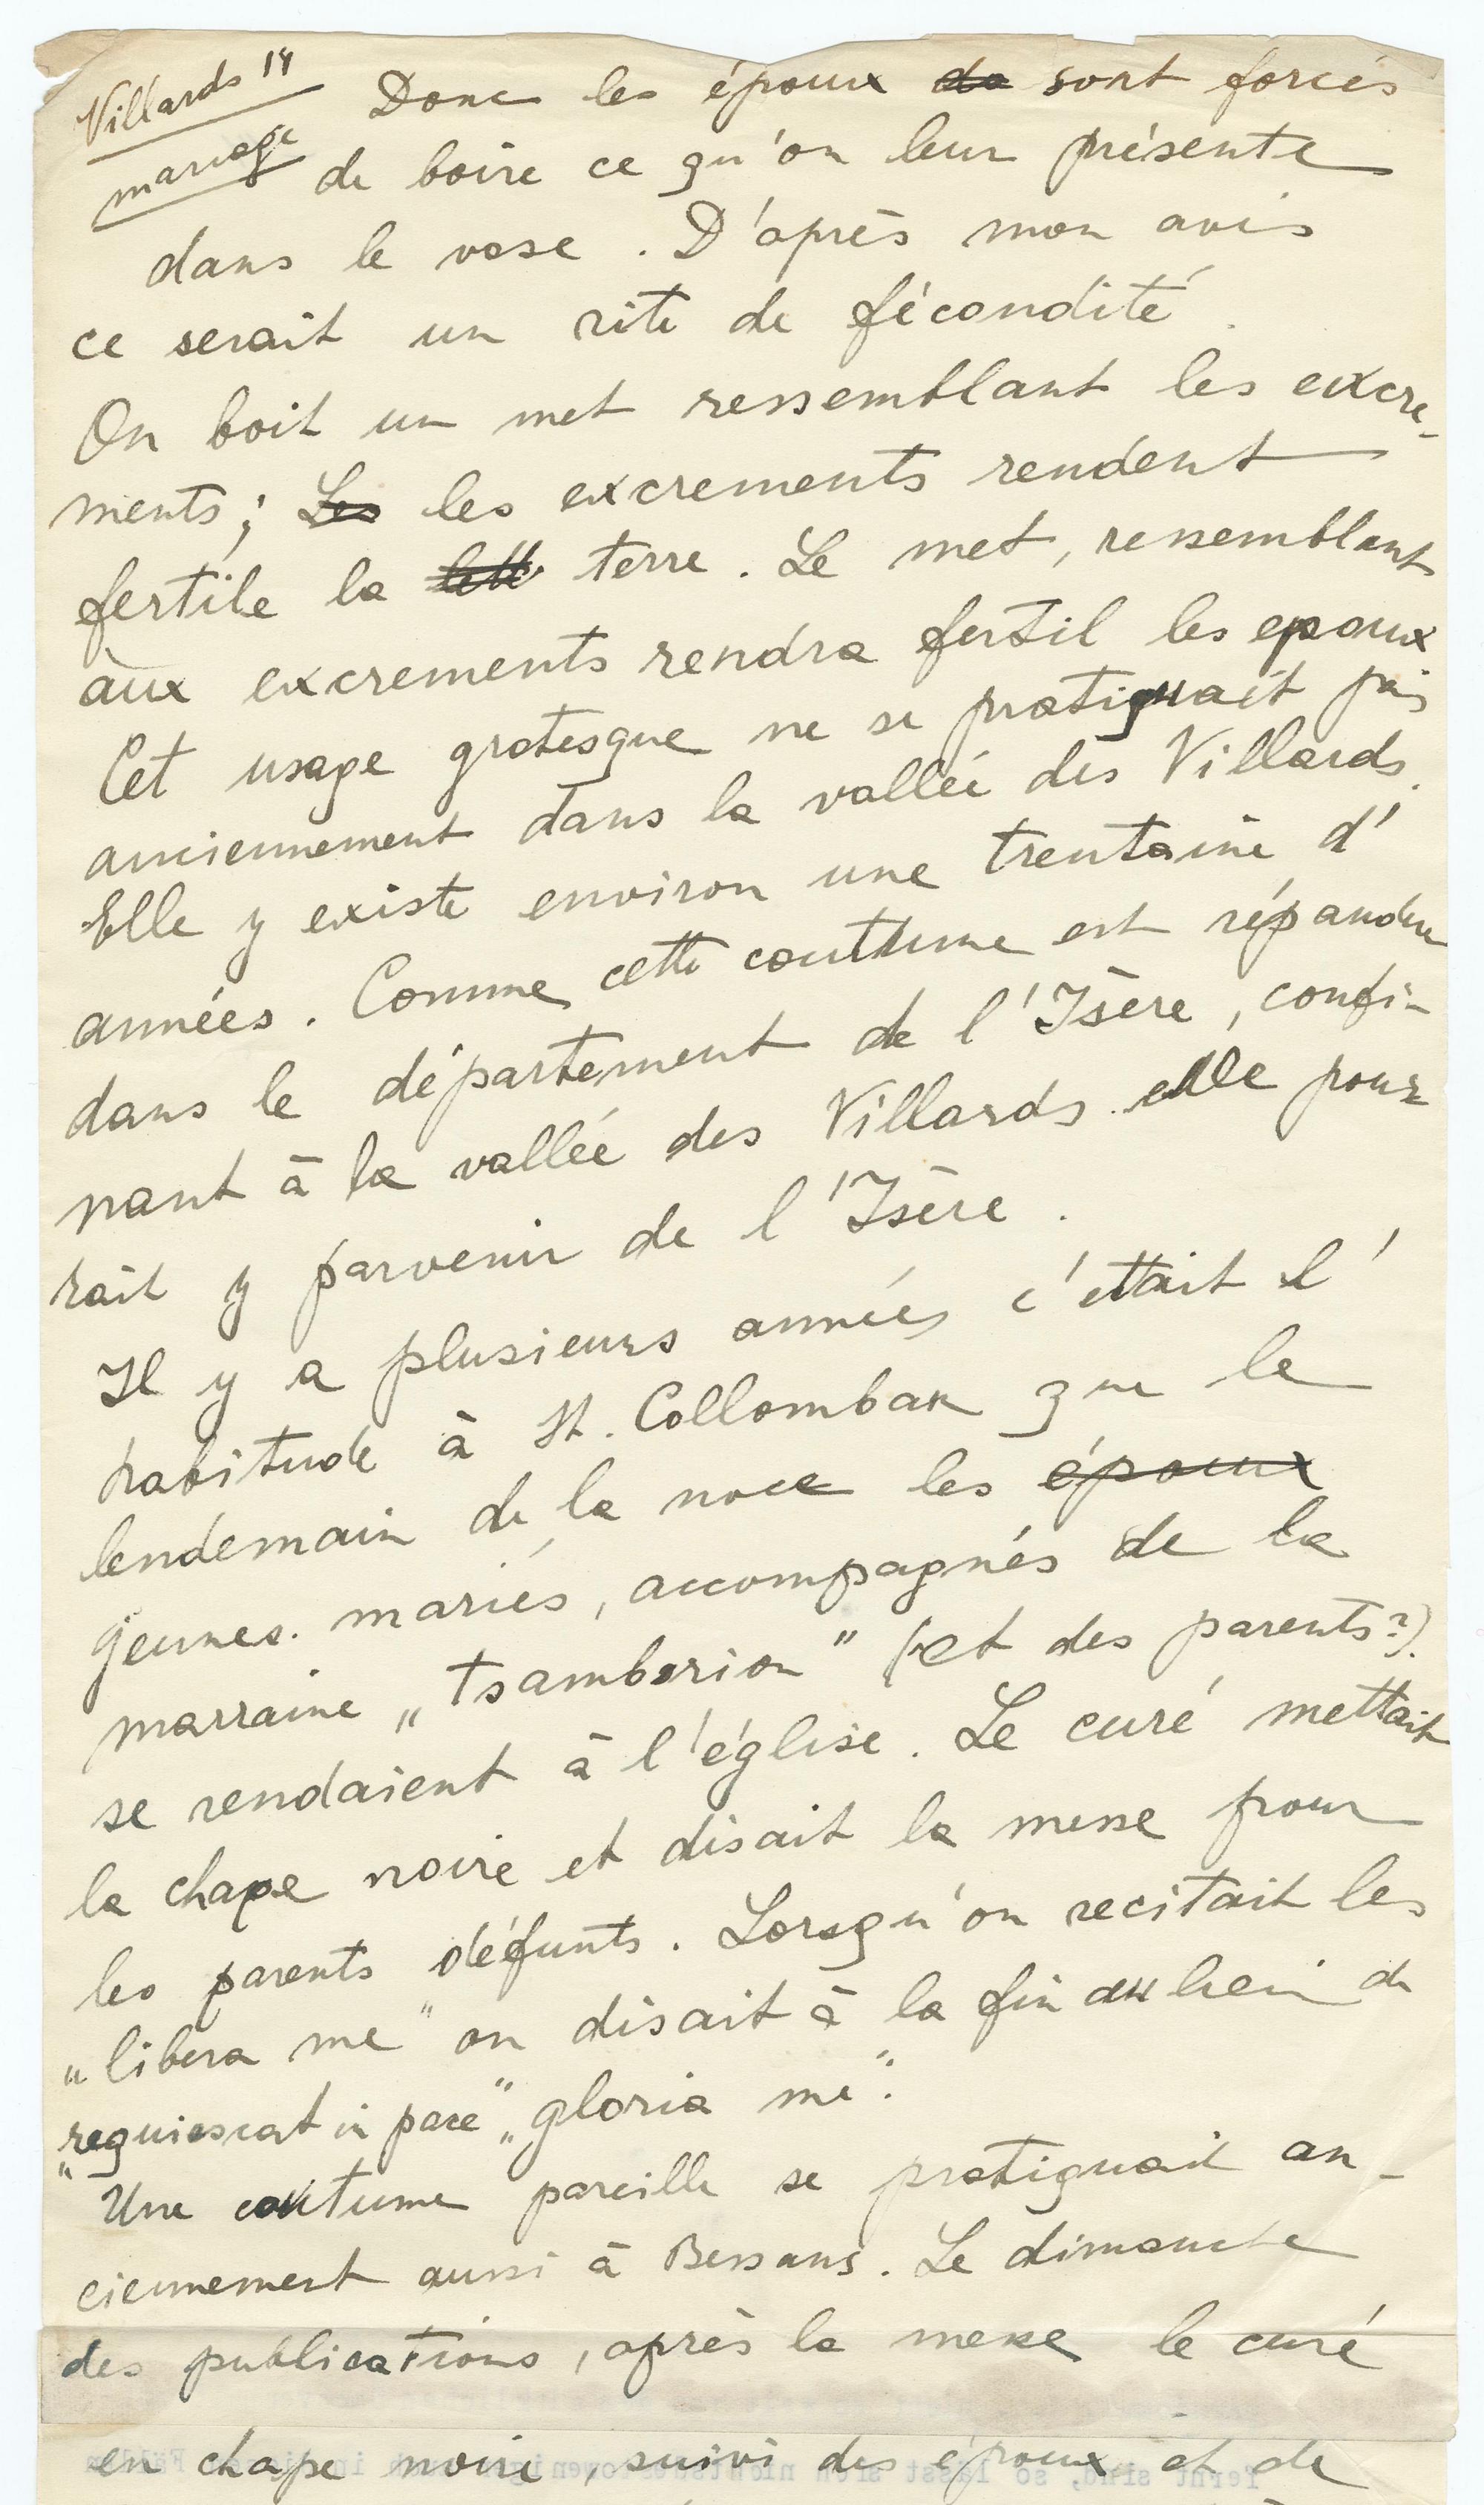 Villards 18
mariage
Donc les époux do sont forcés
de boire ce qu'on leur présente
dans le vase. D'après mon avis
ce serait un rite de fécondité.
On boit un met ressemblant les excre-
ments; Les les excrements rendent
fertile la terre. Le met, ressemblant
aux excrements rendra fertil les epoux.
Cet usage grotesque ne se pratiquait pas
anciennement dans la vallée des Villards.
Elle y existe environ une trentaine d'
années. Comme cette couttume est répandue
dans le département de l'Isère, confi-
nant à la vallée des Villards elle pour
rait y parvenir de l'Isère.
Il y a plusieurs années c'ettait l'
habitude à St. Collomban que le
lendemain de la noce les époux
jeunes mariés, accompagnés de la
marraine „tsamberion" (et des parents?).
se rendaient à l'église. Le curé mettait
la chape noire et disait la messe pour
les parents défunts. Lorsqu'on recitait les
„libera me" on disait à la fin au lieu de
„requiescat in pace" „gloria me".
Une coutume pareille se pratiquait an-
ciennement aussi à Bessans. Le dimanche
des publications, après la messe le curé
en chape noire, suivi des époux et de